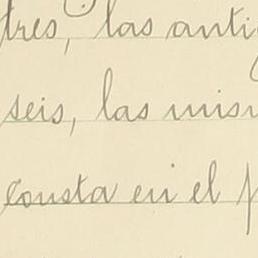 tres, las anti
seis, las mism
consta en el p